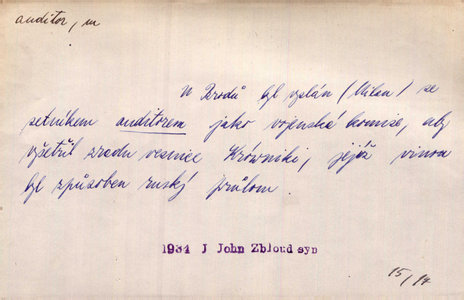 auditor, m
U Brodů byl vyslán (Milan) se
setníkem auditorem jako vojenská komise, aby
vyšetřil zradu vesnice Krówniki, jejíž vinou
byl způsoben ruský průlom
1934 J John Zbloud syn
15/17